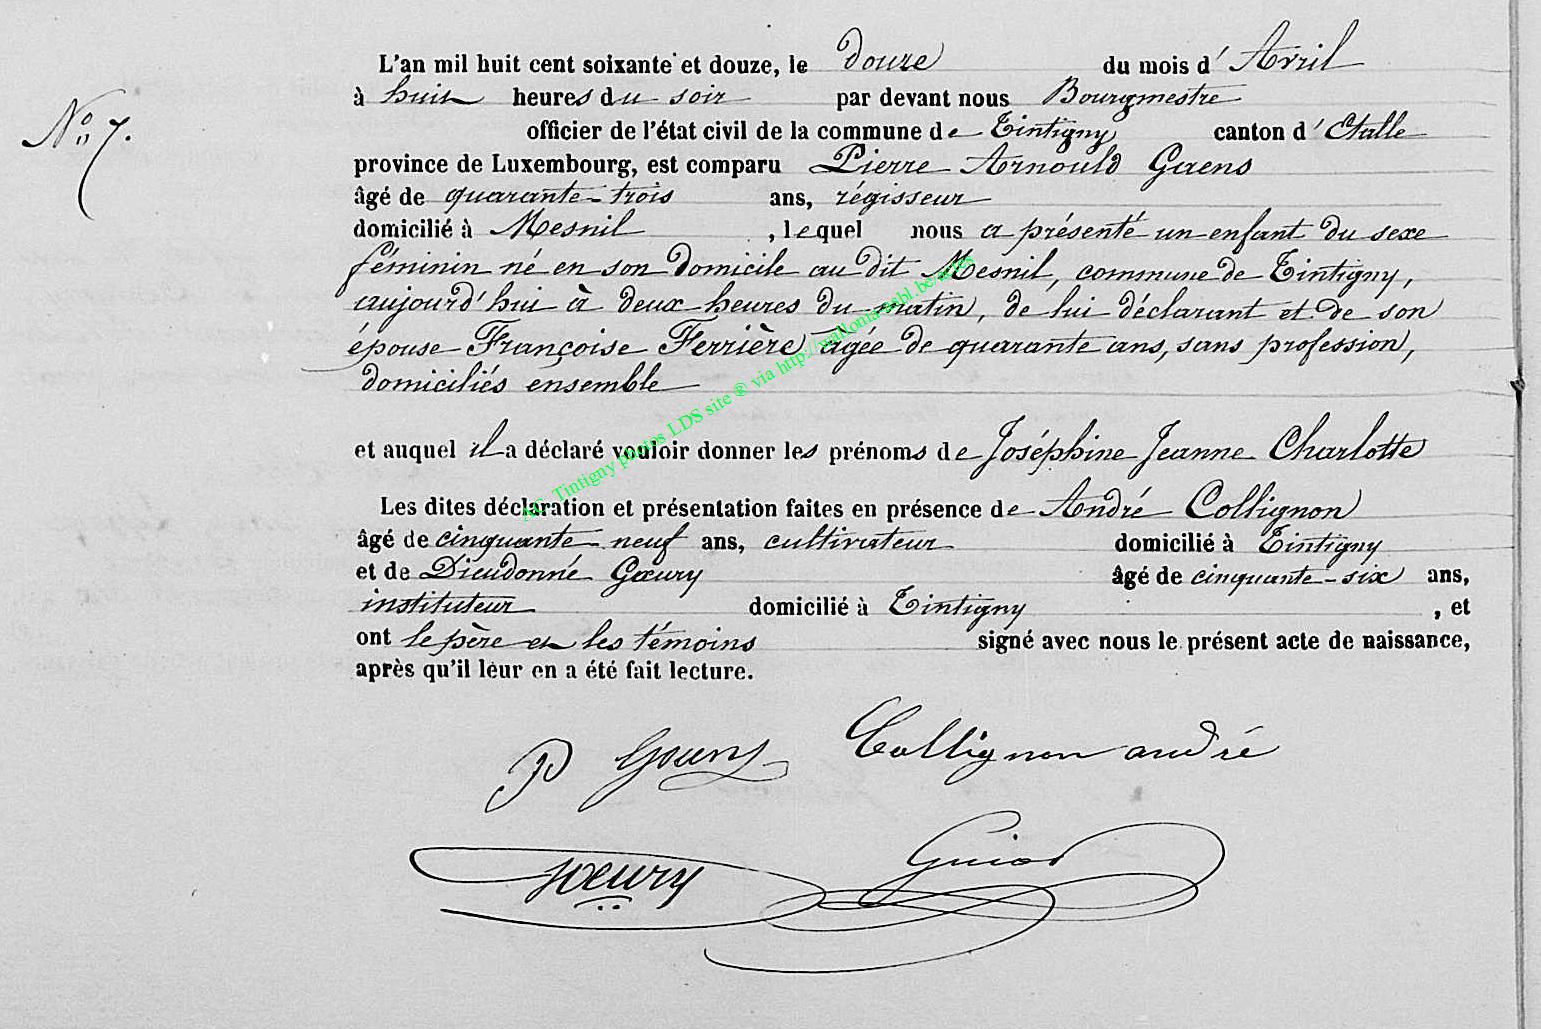 L'an mil huit cent soixante et douze, le douze du mois d' Avril
No 7.
à huit heures du soir par devant nous Bourgmestre
officier de l'état civil de la commune de Tintigny canton d' Etalle
province de Luxembourg, est comparu Pierre Arnould Goens
âgé de quarante-trois ans, régisseur
domicilié à Mesnil , lequel nous a présenté un enfant du sexe
féminin né en son domicile au dit Mesnil, commune de Tintigny,
aujourd'hui à deux heures du matin, de lui déclarant et de son
épouse Françoise Ferrière, agée de quarante ans, sans profession,
domiciliés ensemble
et auquel il a déclaré vouloir donner les prénoms de Joséphine Jeanne Charlotte
AC Tintigny photos LDS site ® via
Les dites déclaration et présentation faites en présence de André Collignon
âgé de cinquante-neuf ans, cultivateur domicilié à Tintigny
et de Dieudonné Gœury âgé de cinquante-six ans,
instituteur domicilié à Tintigny , et
ont le père et les témoins signé avec nous le présent acte de naissance,
après qu'il leur en a été fait lecture.
P Goens Collignon andré
Gœury